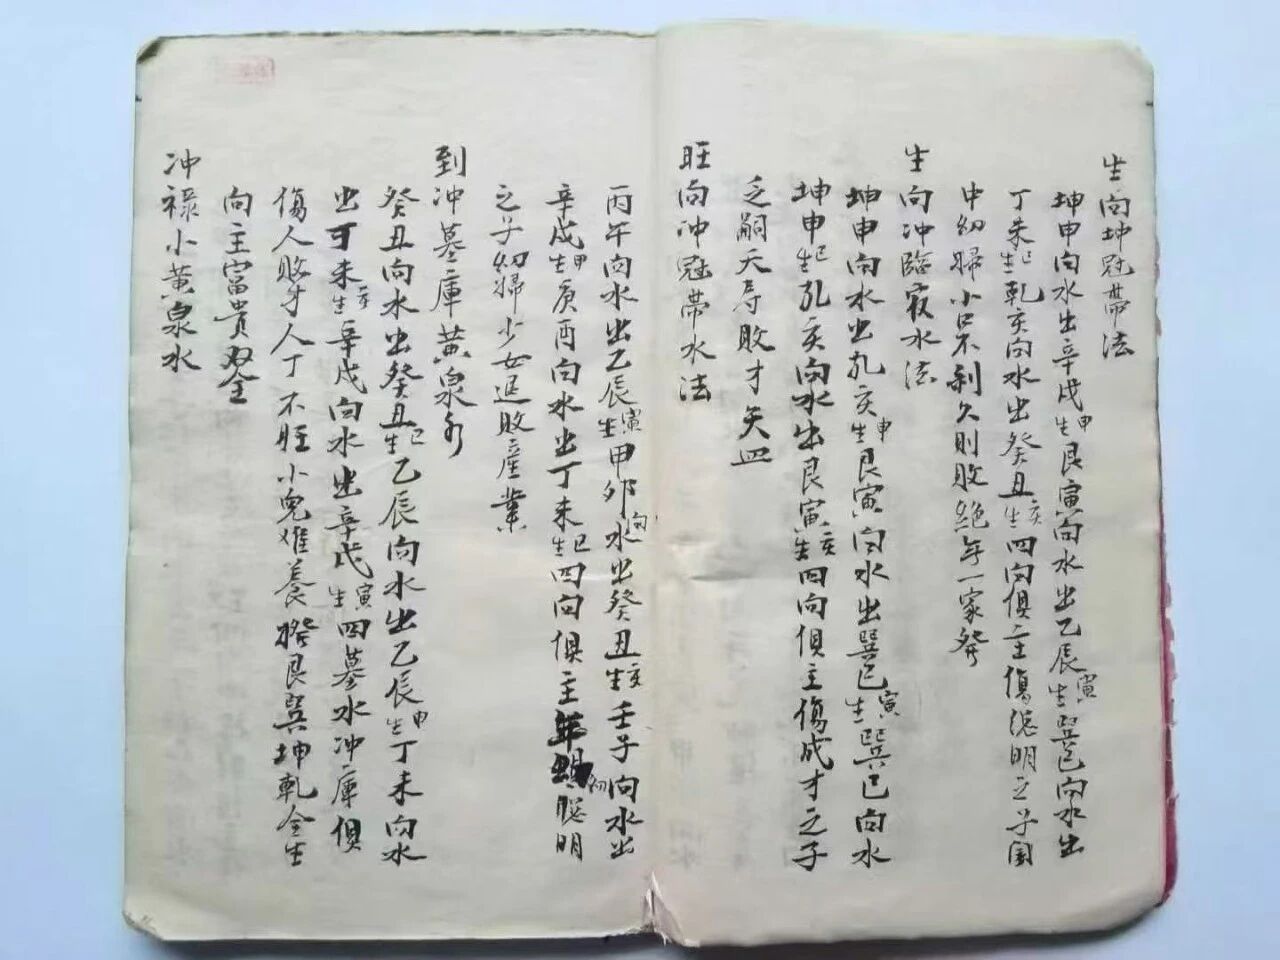 生向坤冠帶法
坤申向水出辛戌申生艮寅向水出乙辰寅生巽巳向水出
丁未巳生乾亥向水出癸丑亥生四向俱主傷聰明之子閨
中幼婦小口不利久則敗絕年一家發
生向冲臨官水法
坤申向水出乾亥申生艮寅向水出巽巳寅生巽巳向水
坤申巳生乾亥向水出艮寅亥生四向俱主傷成才之子
乏嗣夭壽敗才失血
旺向冲冠帶水法
丙午向水出乙辰寅生甲卯向水出癸丑亥生壬子向水出
辛戌申生庚酉向水出丁未巳生四向俱主年幼聰明
之子幼婦少女退敗產業
到冲墓庫黃泉水
癸丑向水出癸丑巳生乙辰向水出乙辰申生丁未向水
出丁未亥生辛戌向水出辛戌寅生四墓水冲庫俱
傷人敗才人丁不旺小兒难養撥艮巽坤乾全生
向主富貴双全
冲禄小黃泉水